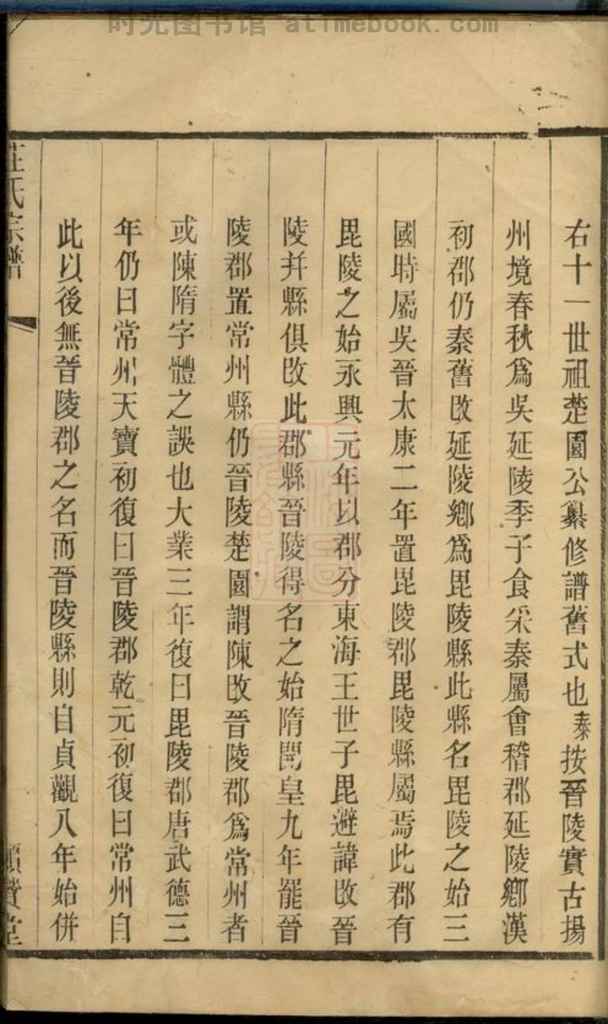 时光图书馆 atimebook.com
右十一世祖楚園公纂修譜舊式也秦按晉陵實古揚
州境春秋爲吳延陵季子食采秦屬會稽郡延陵鄉漢
初郡仍秦舊改延陵鄉爲毘陵縣此縣名毘陵之始三
國時屬吳晉太康二年置毘陵郡毘陵縣屬焉此郡有
毘陵之始永興元年以郡分東海王世子毘避諱改晉
陵并縣俱改此郡縣晉陵得名之始隋開皇九年罷晉
陵郡置常州縣仍晉陵楚園謂陳改晉陵郡爲常州者
或陳隋字體之誤也大業三年復曰毘陵郡唐武德三
年仍曰常州天寶初復曰晉陵郡乾元初復曰常州自
此以後無晉陵郡之名而晉陵縣則自貞觀八年始併
莊氏宗譜
堂